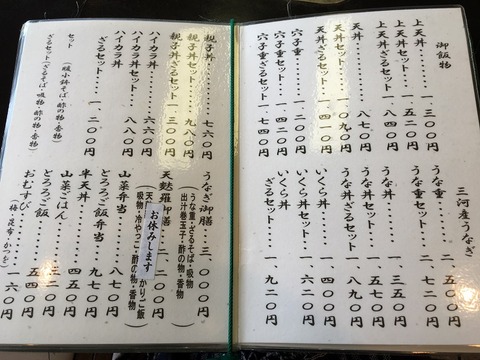 御飯物
上天丼……一、三〇〇円
上天丼セット…一、五二〇円
天丼……八七〇円
天丼セット……一、〇九〇円
天丼ざるセット…一、四一〇円
穴子重……一、二〇〇円
穴子重セット…一、四二〇円
穴子重ざるセット一、七四〇円
三河産うなぎ
うな重……二、五〇〇円
うな重セット…二、七二〇円
うな丼……一、三五〇円
うな丼セット…一、五七〇円
うな丼ざるセット一、八九〇円
いくら丼
いくら丼セット
ざるセット…一、九二〇円
親子丼……七六〇円
親子丼セット…九八〇円
親子丼ざるセット一、三〇〇円
ハイカラ丼……六六〇円
ハイカラ丼セット…八八〇円
ハイカラ丼
ざるセット…一、二〇〇円
セット
（温小鉢そば・酢の物・香物）
ざるセット（ざるそば・吸物・酢の物・香物）
うなぎ御膳……三、〇〇〇円
（うな重・ざるそば・吸物
出汁巻玉子・酢の物・香物）
天麩羅御膳
二、二〇〇円
（天
お休みします
かりご飯
吸物・冷やっこ・酢の物・香物）
山菜弁当……八七〇円
とろろご飯弁当…九七〇円
半天丼……四五〇円
山菜ごはん……三二〇円
とろろご飯……五四〇円
おむすび……一六〇円
（梅・昆布・かつを）